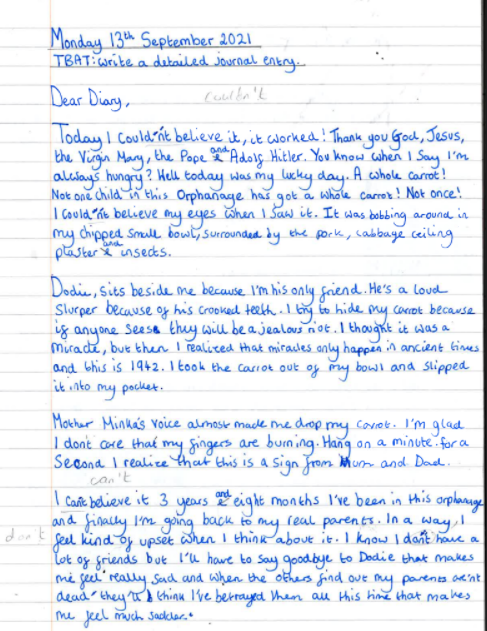 Monday 13th September 2021
TBAT: write a detailed journal entry.
Dear Diary,
couldn't
Today I Could'nt believe it, it worked! Thank you God, Jesus,
the Virgin Mary, the Pope and Adolf Hitler. You know when I Say I'm
always hungry? Well today was my lucky day. A whole carrot!
Not one child in this Orphanage has got a whole carrot! Not once!
I Could'nt believe my eyes when I saw it. It was bobbing around in
my chipped small bowl, surrounded by the pork, cabbage ceiling
plaster and insects.
Dodie, sits beside me because I'm his only friend. He's a loud
Slurper because of his crooked teeth. I try to hide my carrot because
if anyone sees they will be a jealous riot. I thought it was a
miracle, but then I realized that miracles only happen in ancient times
and this is 1942. I took the carrot out of my bowl and slipped
it into my pocket.
Mother Minka's voice almost made me drop my carrot. I'm glad
I dont care that my fingers are burning. Hang on a minute. for a
Second I realize that this is a sign from Mum and Dad.
can't
I Cant believe it 3 years and eight months I've been in this orphanage
and finally I'm going back to my real parents. In a way, I
don't
feel kind of upset when I think about it. I know I dont have a
lot of friends but I'll have to say goodbye to Dodie that makes
me feel really sad and when the others find out my parents are'nt
dead they'll think I've betrayed them all this time that makes
me feel much sadder.